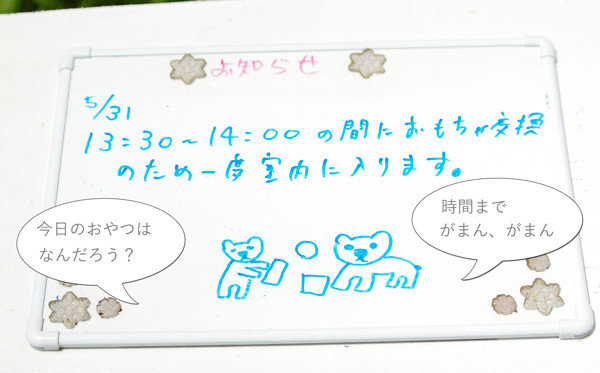 お知らせ
5/31
13:30～14:00の間におもちゃ交換
のため一度室内に入ります。
今日のおやつは
なんだろう？
時間まで
がまん、がまん